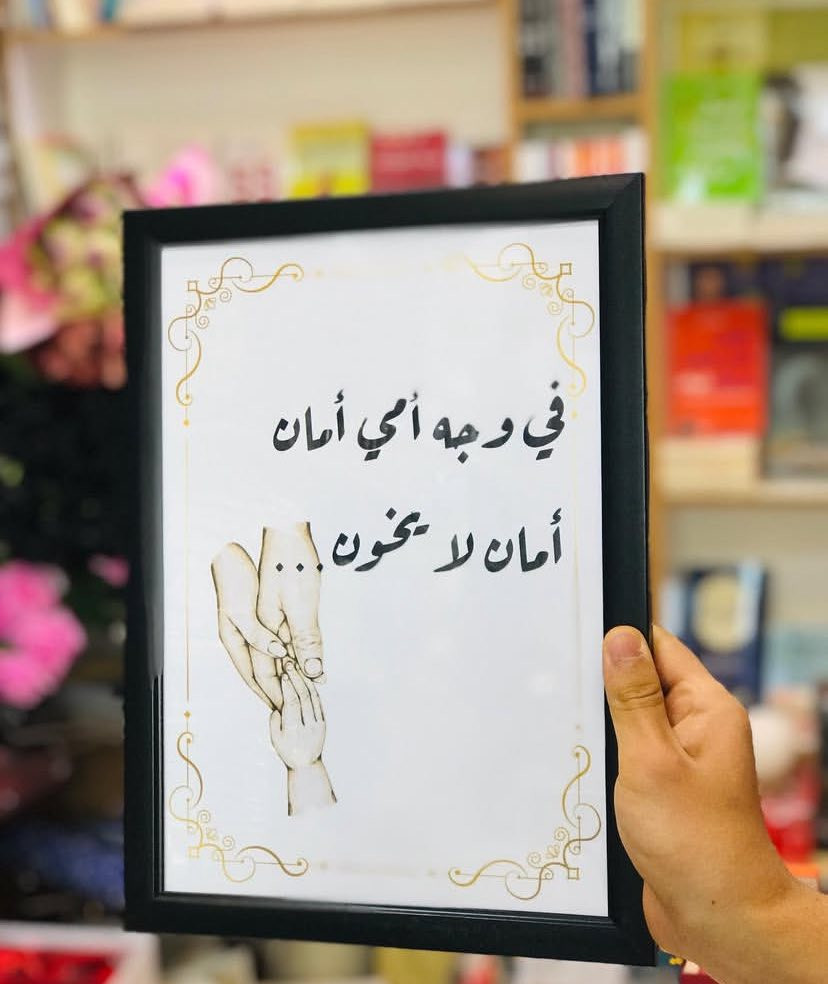 في وجه أمي أمان
أمان لا يخون...